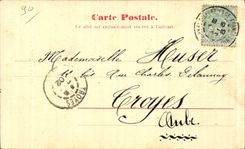 90
Carte Postale.
Ce côté est exclusivement réservé à l'adresse.
Mademoiselle Huser
bis Rue Charles Delaunay
Troyes
Aube
TROYES